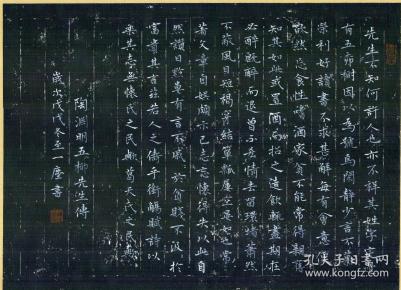 先生不知何許人也亦不詳其姓字宅邊
有五柳樹因以為號焉閑靜少言不慕
榮利好讀書不求甚解每有會意便
欣然忘食性嗜酒家貧不能常得親舊
知其如此或置酒而招之造飲輒盡期在
必醉既醉而退曾不吝情去留環堵蕭然
不蔽風日短褐穿結簞瓢屢空晏如也常
著文章自娛頗示己志忘懷得失以此自
終讚曰黔婁有言不戚於貧賤不汲於
富貴其言茲若人之儔乎銜觴賦詩以
樂其志無懷氏之民歟葛天氏之民歟
陶淵明五柳先生傳
歲次戊戌冬至一塵書
孔夫子旧书网
www.kongfz.com